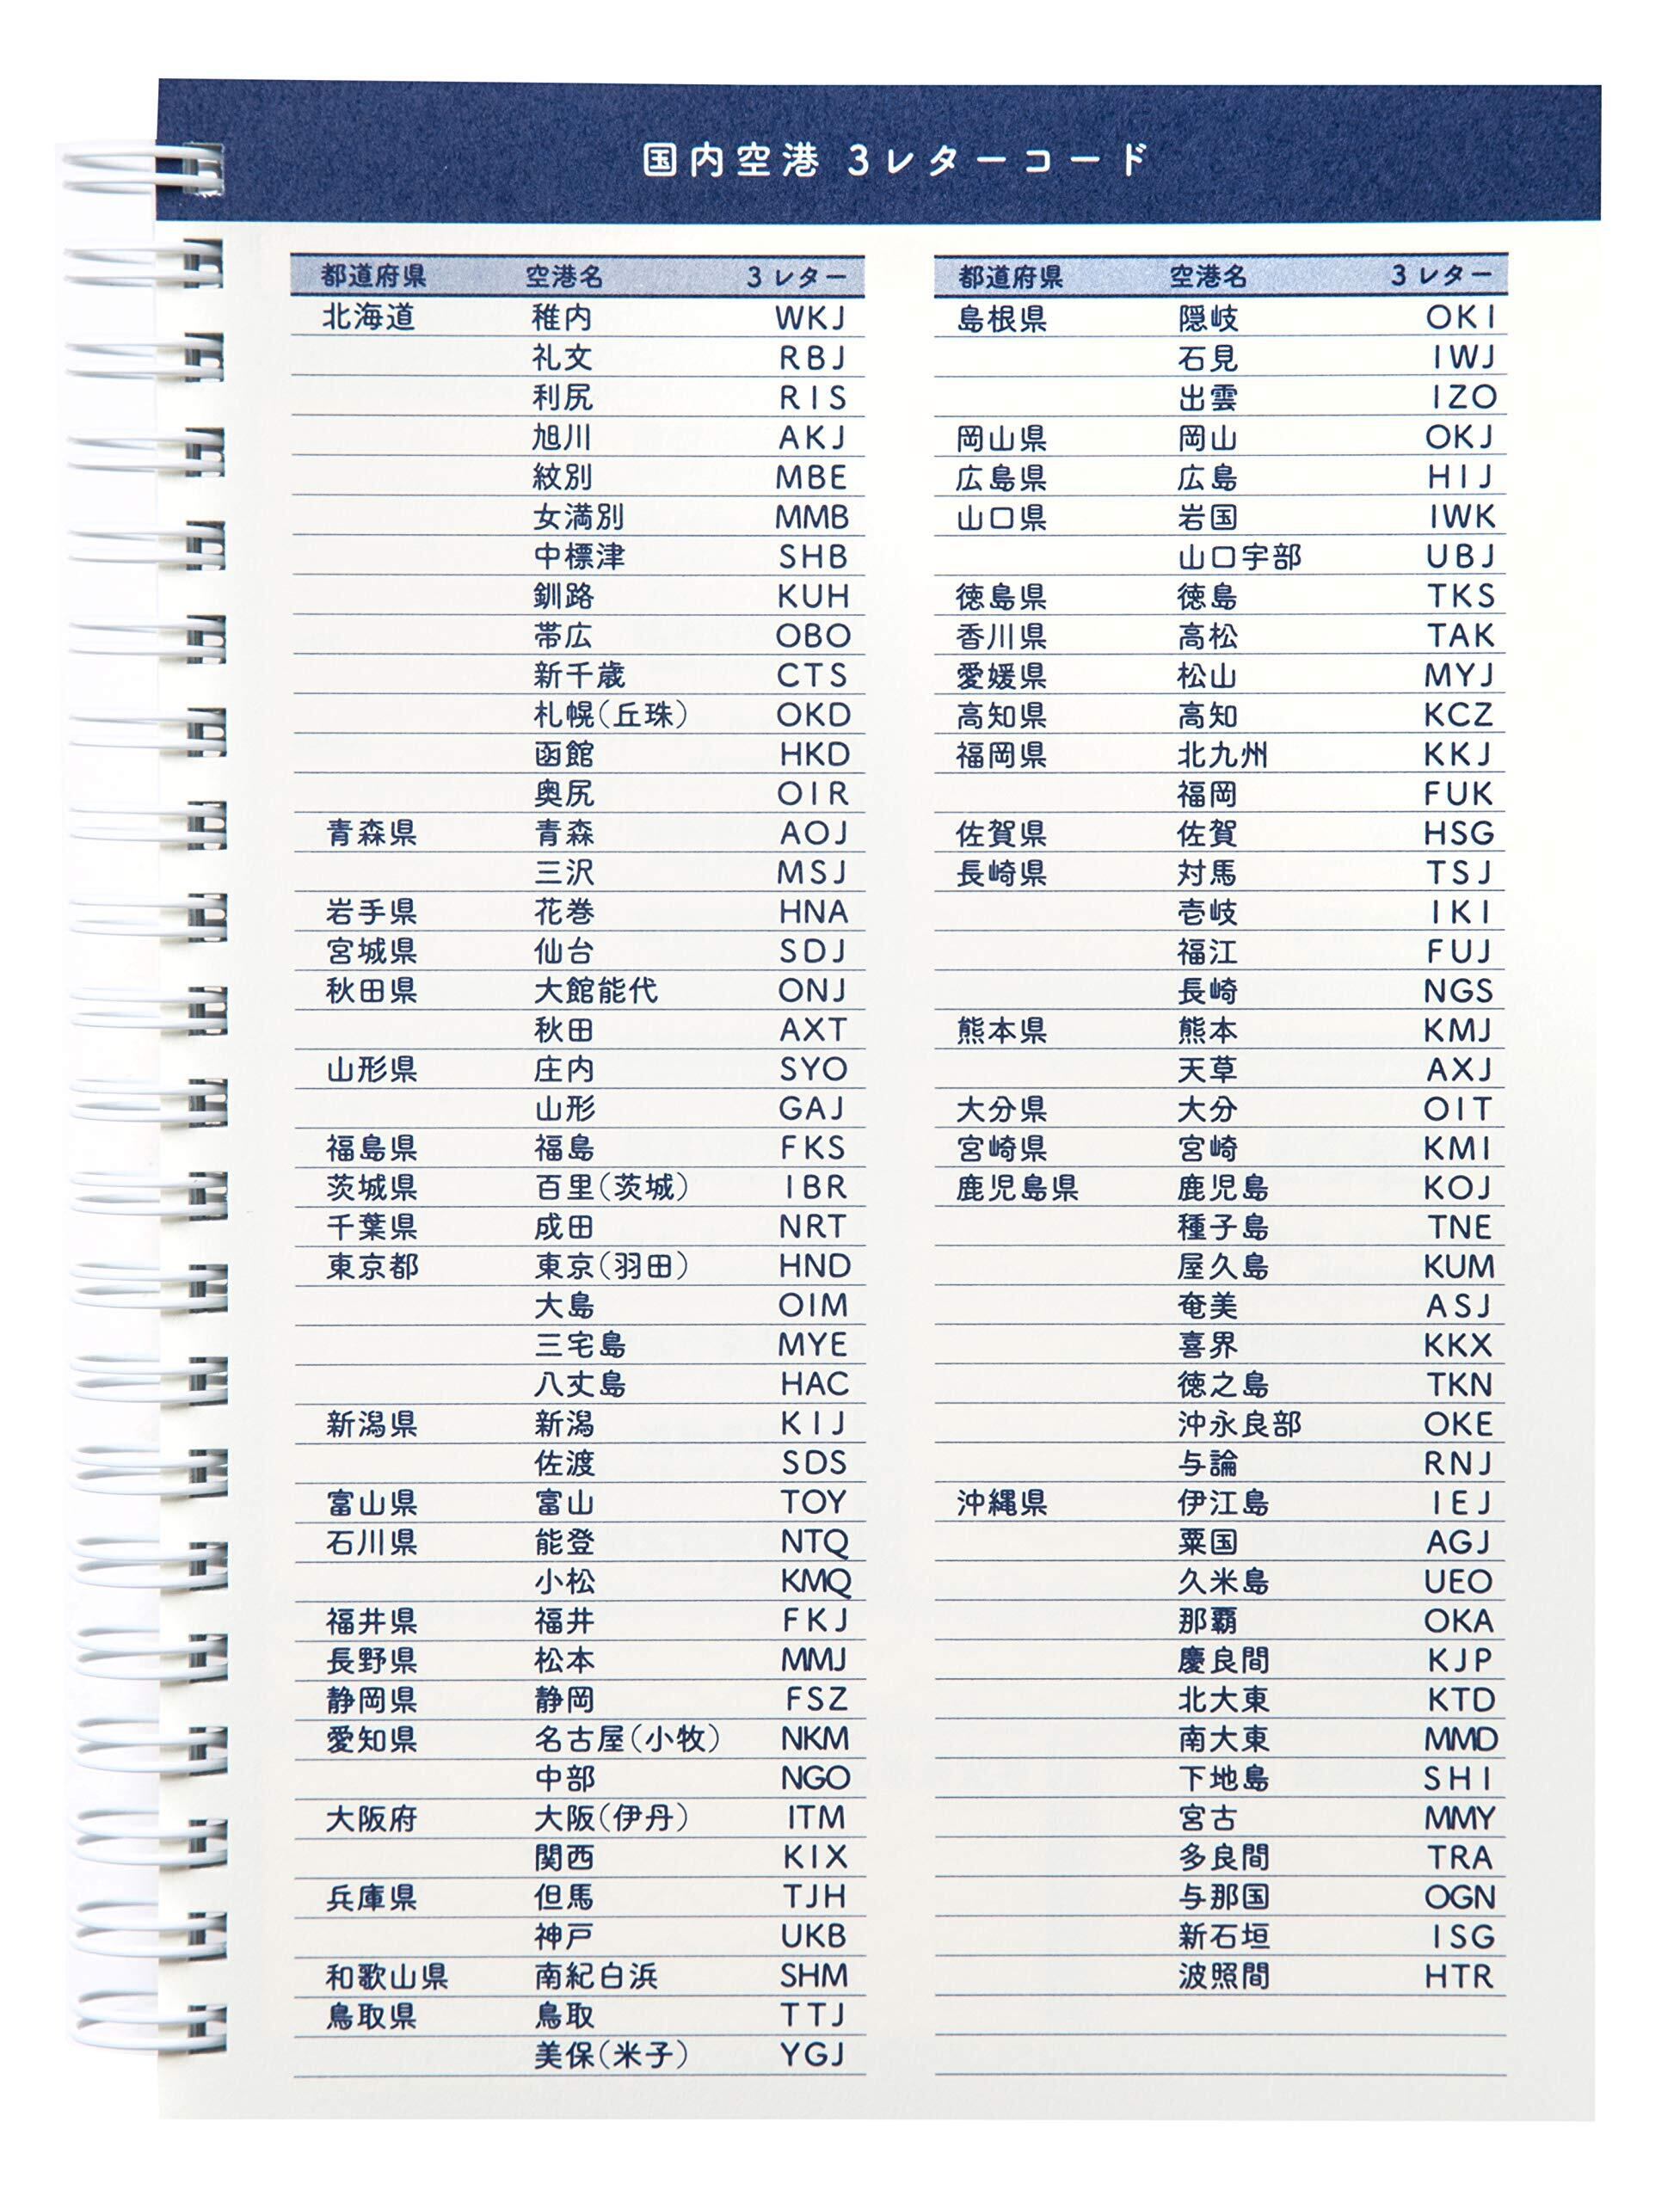 国内空港 3レターコード
都道府県 空港名 3レター
北海道 稚内 WKJ
礼文 RBJ
利尻 RIS
旭川 AKJ
紋別 MBE
女満別 MMB
中標津 SHB
釧路 KUH
帯広 OBO
新千歳 CTS
札幌(丘珠) OKD
函館 HKD
奥尻 OIR
青森県 青森 AOJ
三沢 MSJ
岩手県 花巻 HNA
宮城県 仙台 SDJ
秋田県 大館能代 ONJ
秋田 AXT
山形県 庄内 SYO
山形 GAJ
福島県 福島 FKS
茨城県 百里(茨城) IBR
千葉県 成田 NRT
東京都 東京(羽田) HND
大島 OIM
三宅島 MYE
八丈島 HAC
新潟県 新潟 KIJ
佐渡 SDS
富山県 富山 TOY
石川県 能登 NTQ
小松 KMQ
福井県 福井 FKJ
長野県 松本 MMJ
静岡県 静岡 FSZ
愛知県 名古屋(小牧) NKM
中部 NGO
大阪府 大阪(伊丹) ITM
関西 KIX
兵庫県 但馬 TJH
神戸 UKB
和歌山県 南紀白浜 SHM
鳥取県 鳥取 TTJ
美保(米子) YGJ
都道府県 空港名 3レター
島根県 隠岐 OKI
石見 IWJ
出雲 IZO
岡山県 岡山 OKJ
広島県 広島 HIJ
山口県 岩国 IWK
山口宇部 UBJ
徳島県 徳島 TKS
香川県 高松 TAK
愛媛県 松山 MYJ
高知県 高知 KCZ
福岡県 北九州 KKJ
福岡 FUK
佐賀県 佐賀 HSG
長崎県 対馬 TSJ
壱岐 IKI
福江 FUJ
長崎 NGS
熊本県 熊本 KMJ
天草 AXJ
大分県 大分 OIT
宮崎県 宮崎 KMI
鹿児島県 鹿児島 KOJ
種子島 TNE
屋久島 KUM
奄美 ASJ
喜界 KKX
徳之島 TKN
沖永良部 OKE
与論 RNJ
沖縄県 伊江島 IEJ
粟国 AGJ
久米島 UEO
那覇 OKA
慶良間 KJP
北大東 KTD
南大東 MMD
下地島 SHI
宮古 MMY
多良間 TRA
与那国 OGN
新石垣 ISG
波照間 HTR